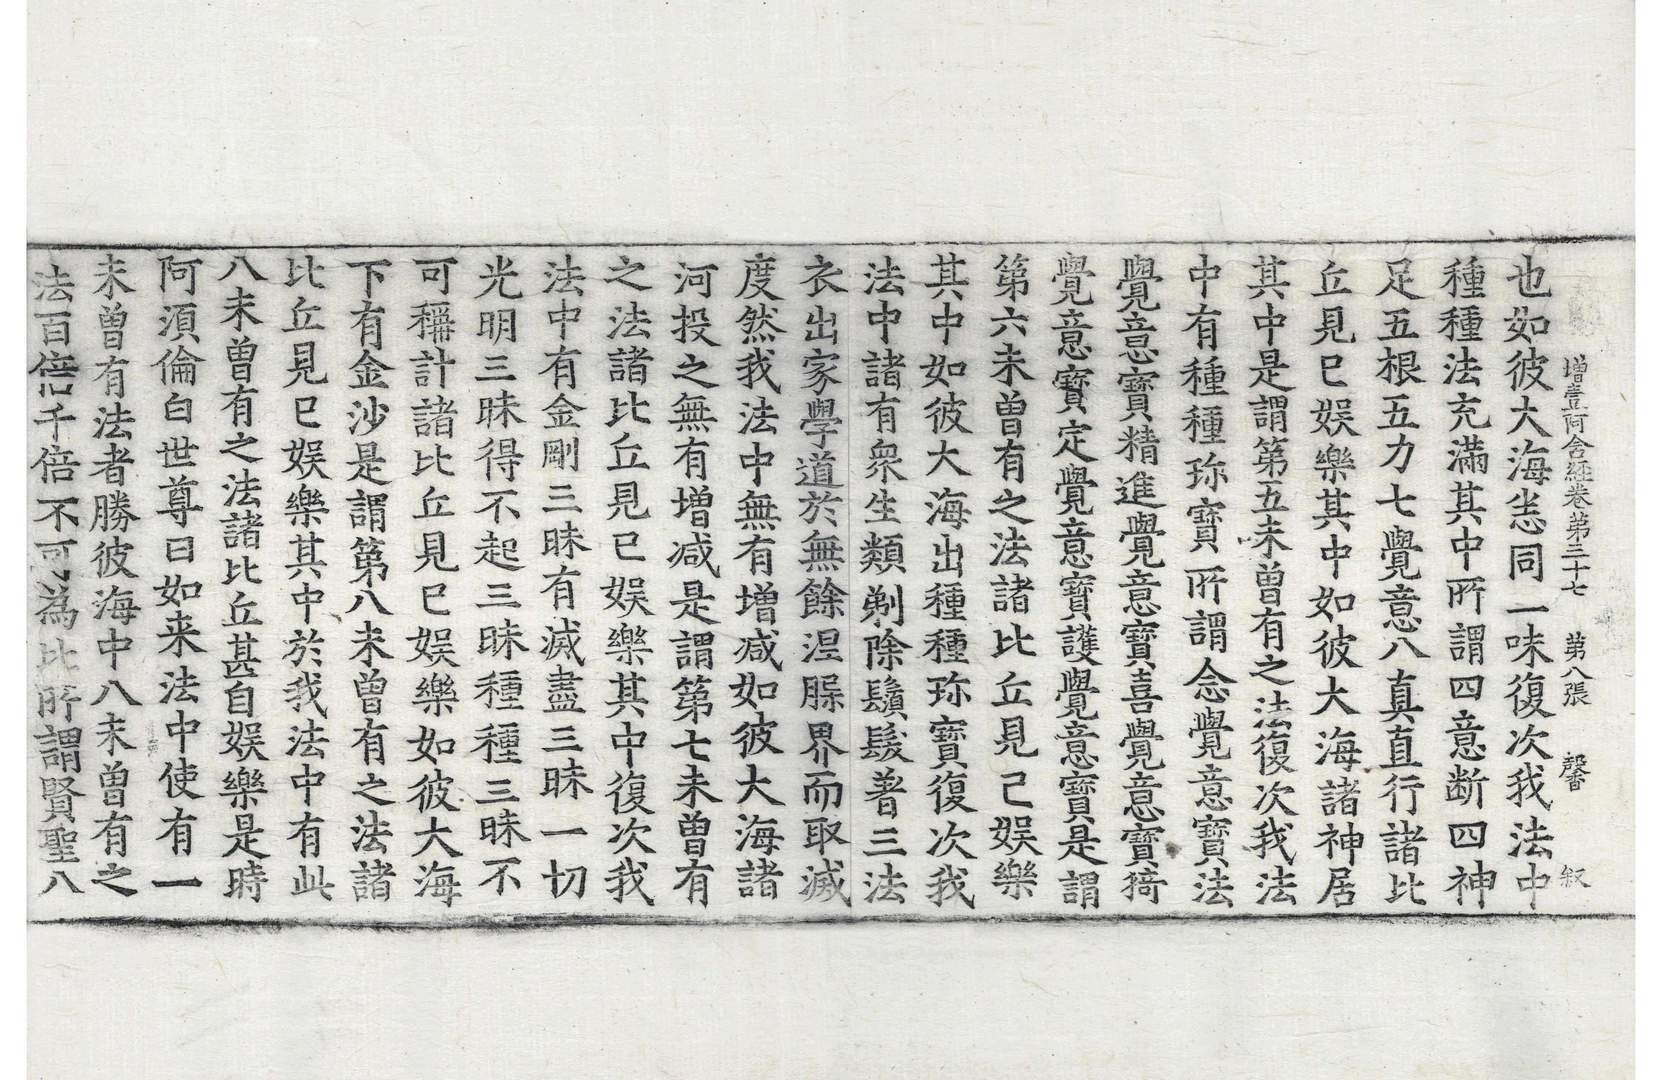 增壹阿含經卷第三十七 第八張 馨 叙
也如彼大海恙同一味復次我法中
種種法充滿其中所謂四意断四神
足五根五力七覺意八真直行諸比
丘見已娱樂其中如彼大海諸神居
其中是謂第五未曾有之法復次我法
中有種種珎寶所謂念覺意寶法
覺意寶精進覺意寶喜覺意寶猗
覺意寶定覺意寶護覺意寶是謂
第六未曾有之法諸比丘見已娱樂
其中如彼大海出種種珎寶復次我
法中諸有衆生類剃除鬚髮著三法
衣出家學道於無餘涅槃界而取滅
度然我法中無有增减如彼大海諸
河投之無有增减是謂第七未曾有
之法諸比丘見已娱樂其中復次我
法中有金剛三昧有滅盡三昧一切
光明三昧得不起三昧種種三昧不
可稱計諸比丘見已娱樂如彼大海
下有金沙是謂第八未曾有之法諸
比丘見已娱樂其中於我法中有此
八未曾有之法諸比丘甚自娱樂是時
阿須倫白世尊曰如来法中使有一
未曾有法者勝彼海中八未曾有之
法百倍千倍不可為比所謂賢聖八